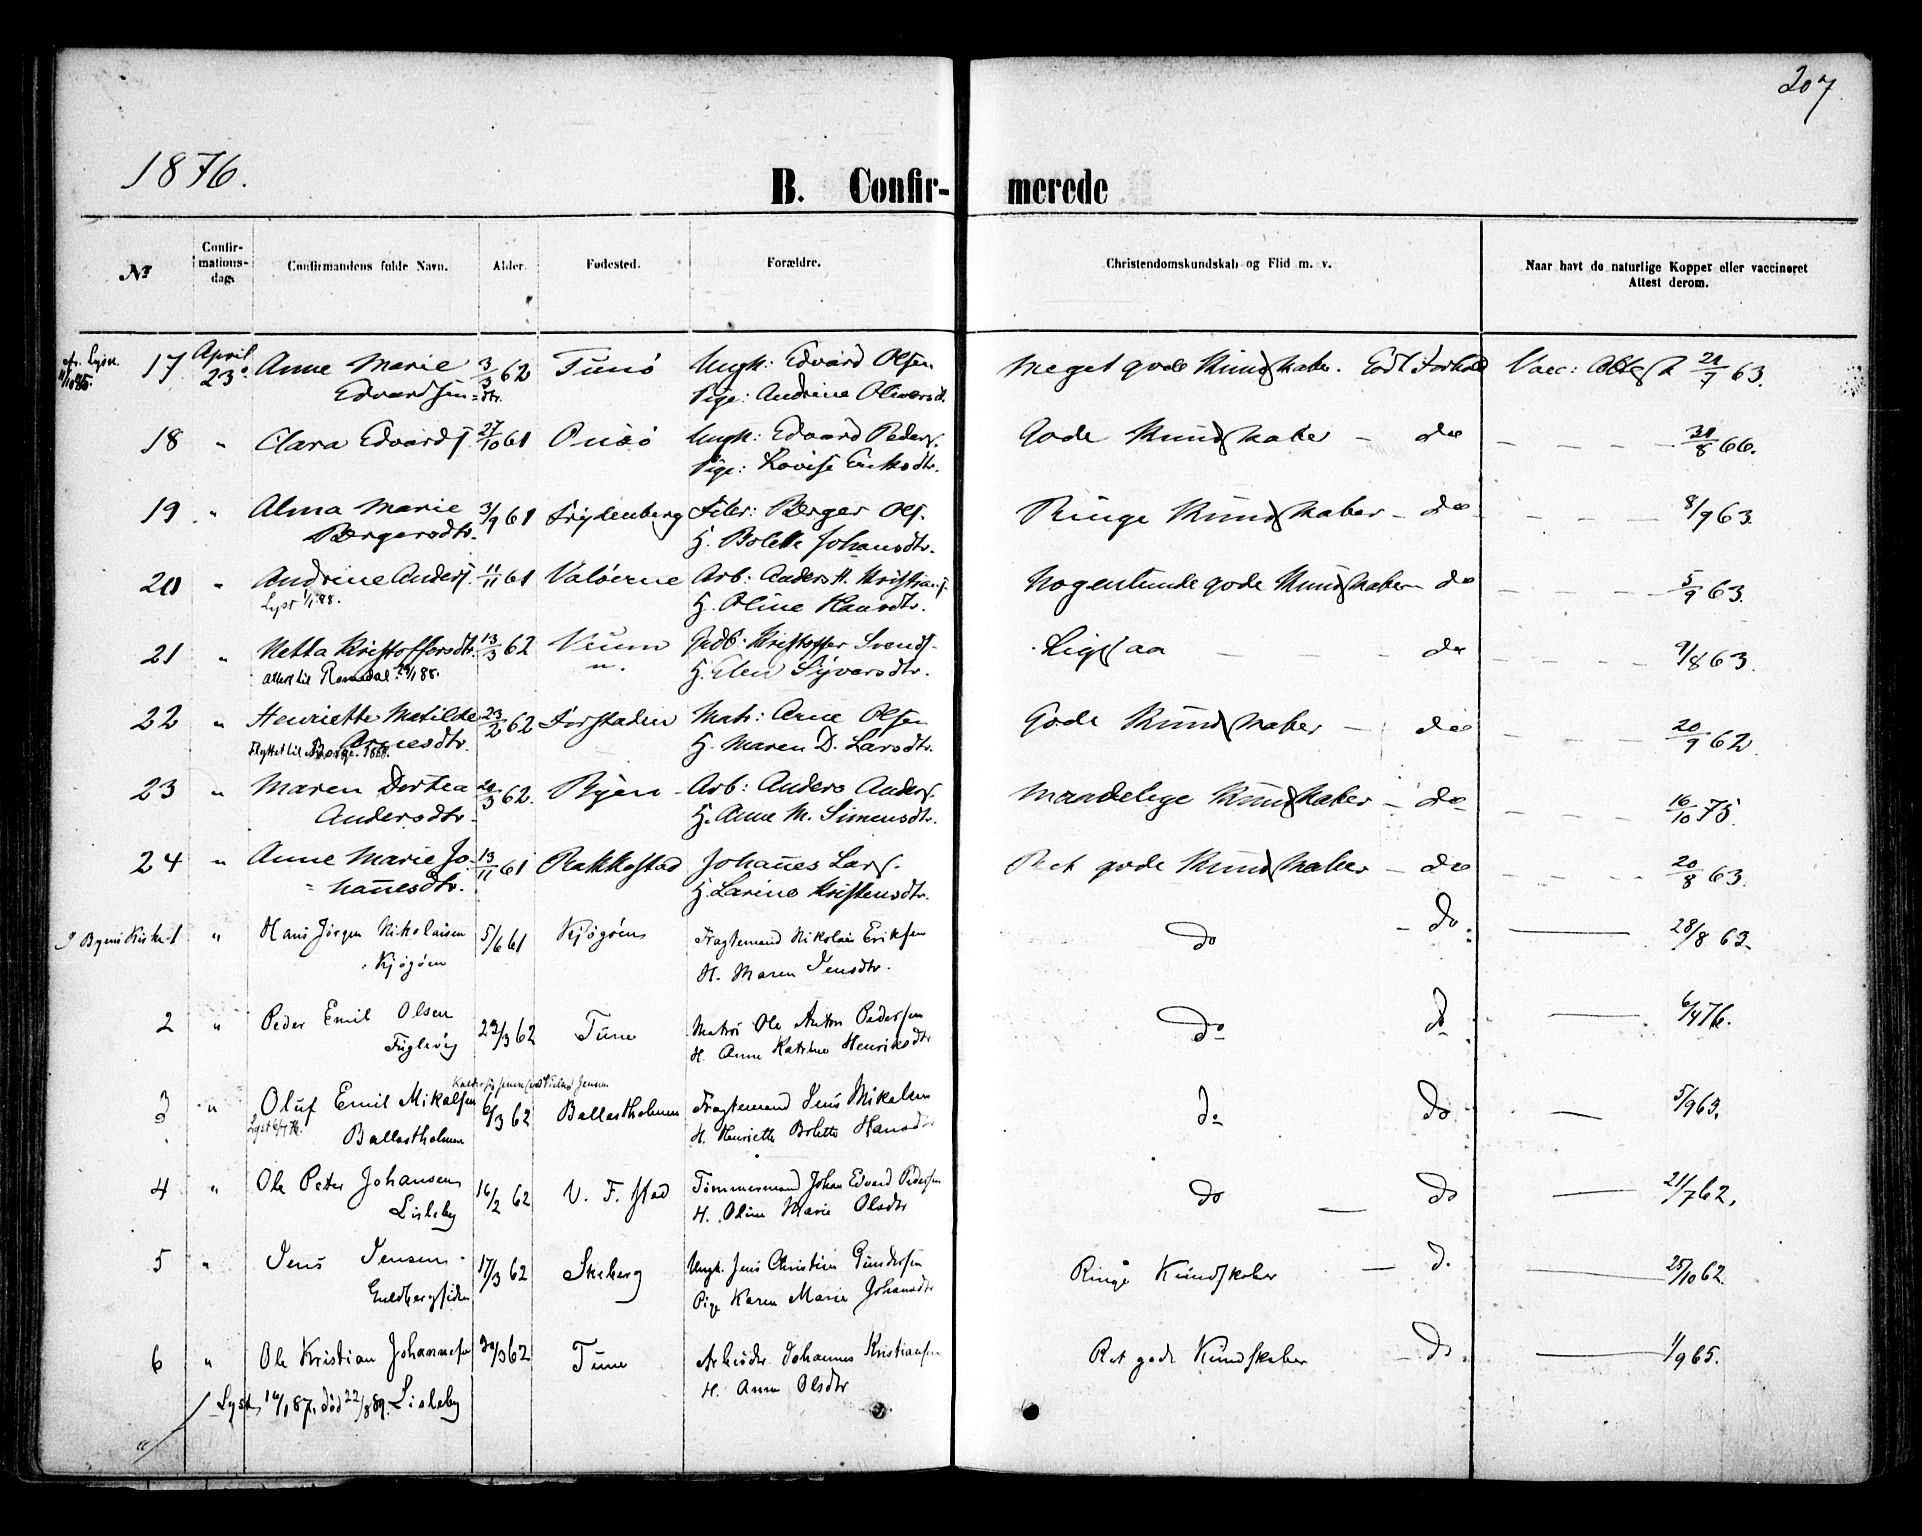 207
1876.
B. Confir- merede
№
Confir-
mations-
dag.
Confirmandens fulde Navn.
Alder.
Fødested.
Forældre.
Christendomskundskab og Flid m. v.
Naar havt de naturlige Kopper eller vaccineret
Attest derom.
17 April Anne Marie 3/3 62 Tunø Ungk: Edvard Olsen Meget gode Kundskaber. Godt Forhold Vacc: Attest 21/7 63.
23. Edvardsen dtr. Pige: Andrine Oliversd.
18 " Clara Edvards. 27/10 61 Onsø Ungk: Edvard Peders. Gode Kundskaber - do - - - 31/8 66.
Pige: Lovise Eriksdtr.
19 " Alma Marie 3/9 61 Frydenberg Filer: Berger Ols. Ringe Kundskaber - do - - - 8/9 63.
Bergersdtr. H. Bolette Johansdtr.
20 " Andrine Anders. 11/11 61 Valøerne Arb: Anders H. Kristians. Nogenlunde gode Kundskaber - do - - - 5/9 63.
Lyst 1/1 88. H. Oline Hansdtr.
21 " Netta Kristoffersdtr. 13/3 62 Veum Kristoffer Svends. Ligesaa - - - do - - - 9/8 63.
Attest til Romsdal 24/1 88. " H. Elen Syversdtr.
22 " Henriette Matilde 23/2 62 Forstaden Matr: Arne Olsen Gode Kundskaber - do - - - 20/9 62.
Flyttet til Borge 1888. Arnesdtr. H. Maren D. Larsdtr.
23 " Maren Dortea 20/3 62. Byen - Arb: Anders Anders. Maadelige Kundskaber - do - - - 16/10 75.
Andersdtr. H. Anne M. Simensdtr.
24 " Anne Marie Jo- 13/11 61 Rakkestad Johannes Lars. Ret gode Kundskaber - do - - - 20/8 63.
= hannesdtr. H. Larine Kristensdtr.
I Byens Kirke 1 " Hans Jørgen Nikolaisen 5/6 61 Kjøgøen Fragtemand Nikolai Eriksen do - do. 28/8 63.
Kjøgøen H. Maren Jensdtr.
2 " Peder Emil Olsen 22/3 62 Tune Matros Ole Anton Pedersen do do 6/4 76.
Fuglevig H. Anne Katrine Henriksdtr
3 " Oluf Emil Mikalsen 6/3 62 Ballastholmen Fragtemand Jens Mikalsen do do 5/9 63.
Lyst Ballastholmen H. Henriette Bolette Hansdtr
4 " Ole Peter Johansen 16/2 62 V. F. stad Tømmermand Johan Edvard Pedersen do do 21/7 62.
Lisleby H. Oline Marie Olsdtr
5 " Jens Jensen 17/3 62 Skeberg Ungk. Jens Christian Gundersen Ringe Kundskaber - d. 25/10 62.
Guldbergsiden Pige Karen Marie Johansdtr
6 " Ole Kristian Johannesen 30/3 62 Tune Arbeider Johannes Kristiansen Ret gode Kundskaber - do 1/9 65.
Lyst 16/1 87, død 22/8 89. Lisleby H. Anne Olsdtr
"